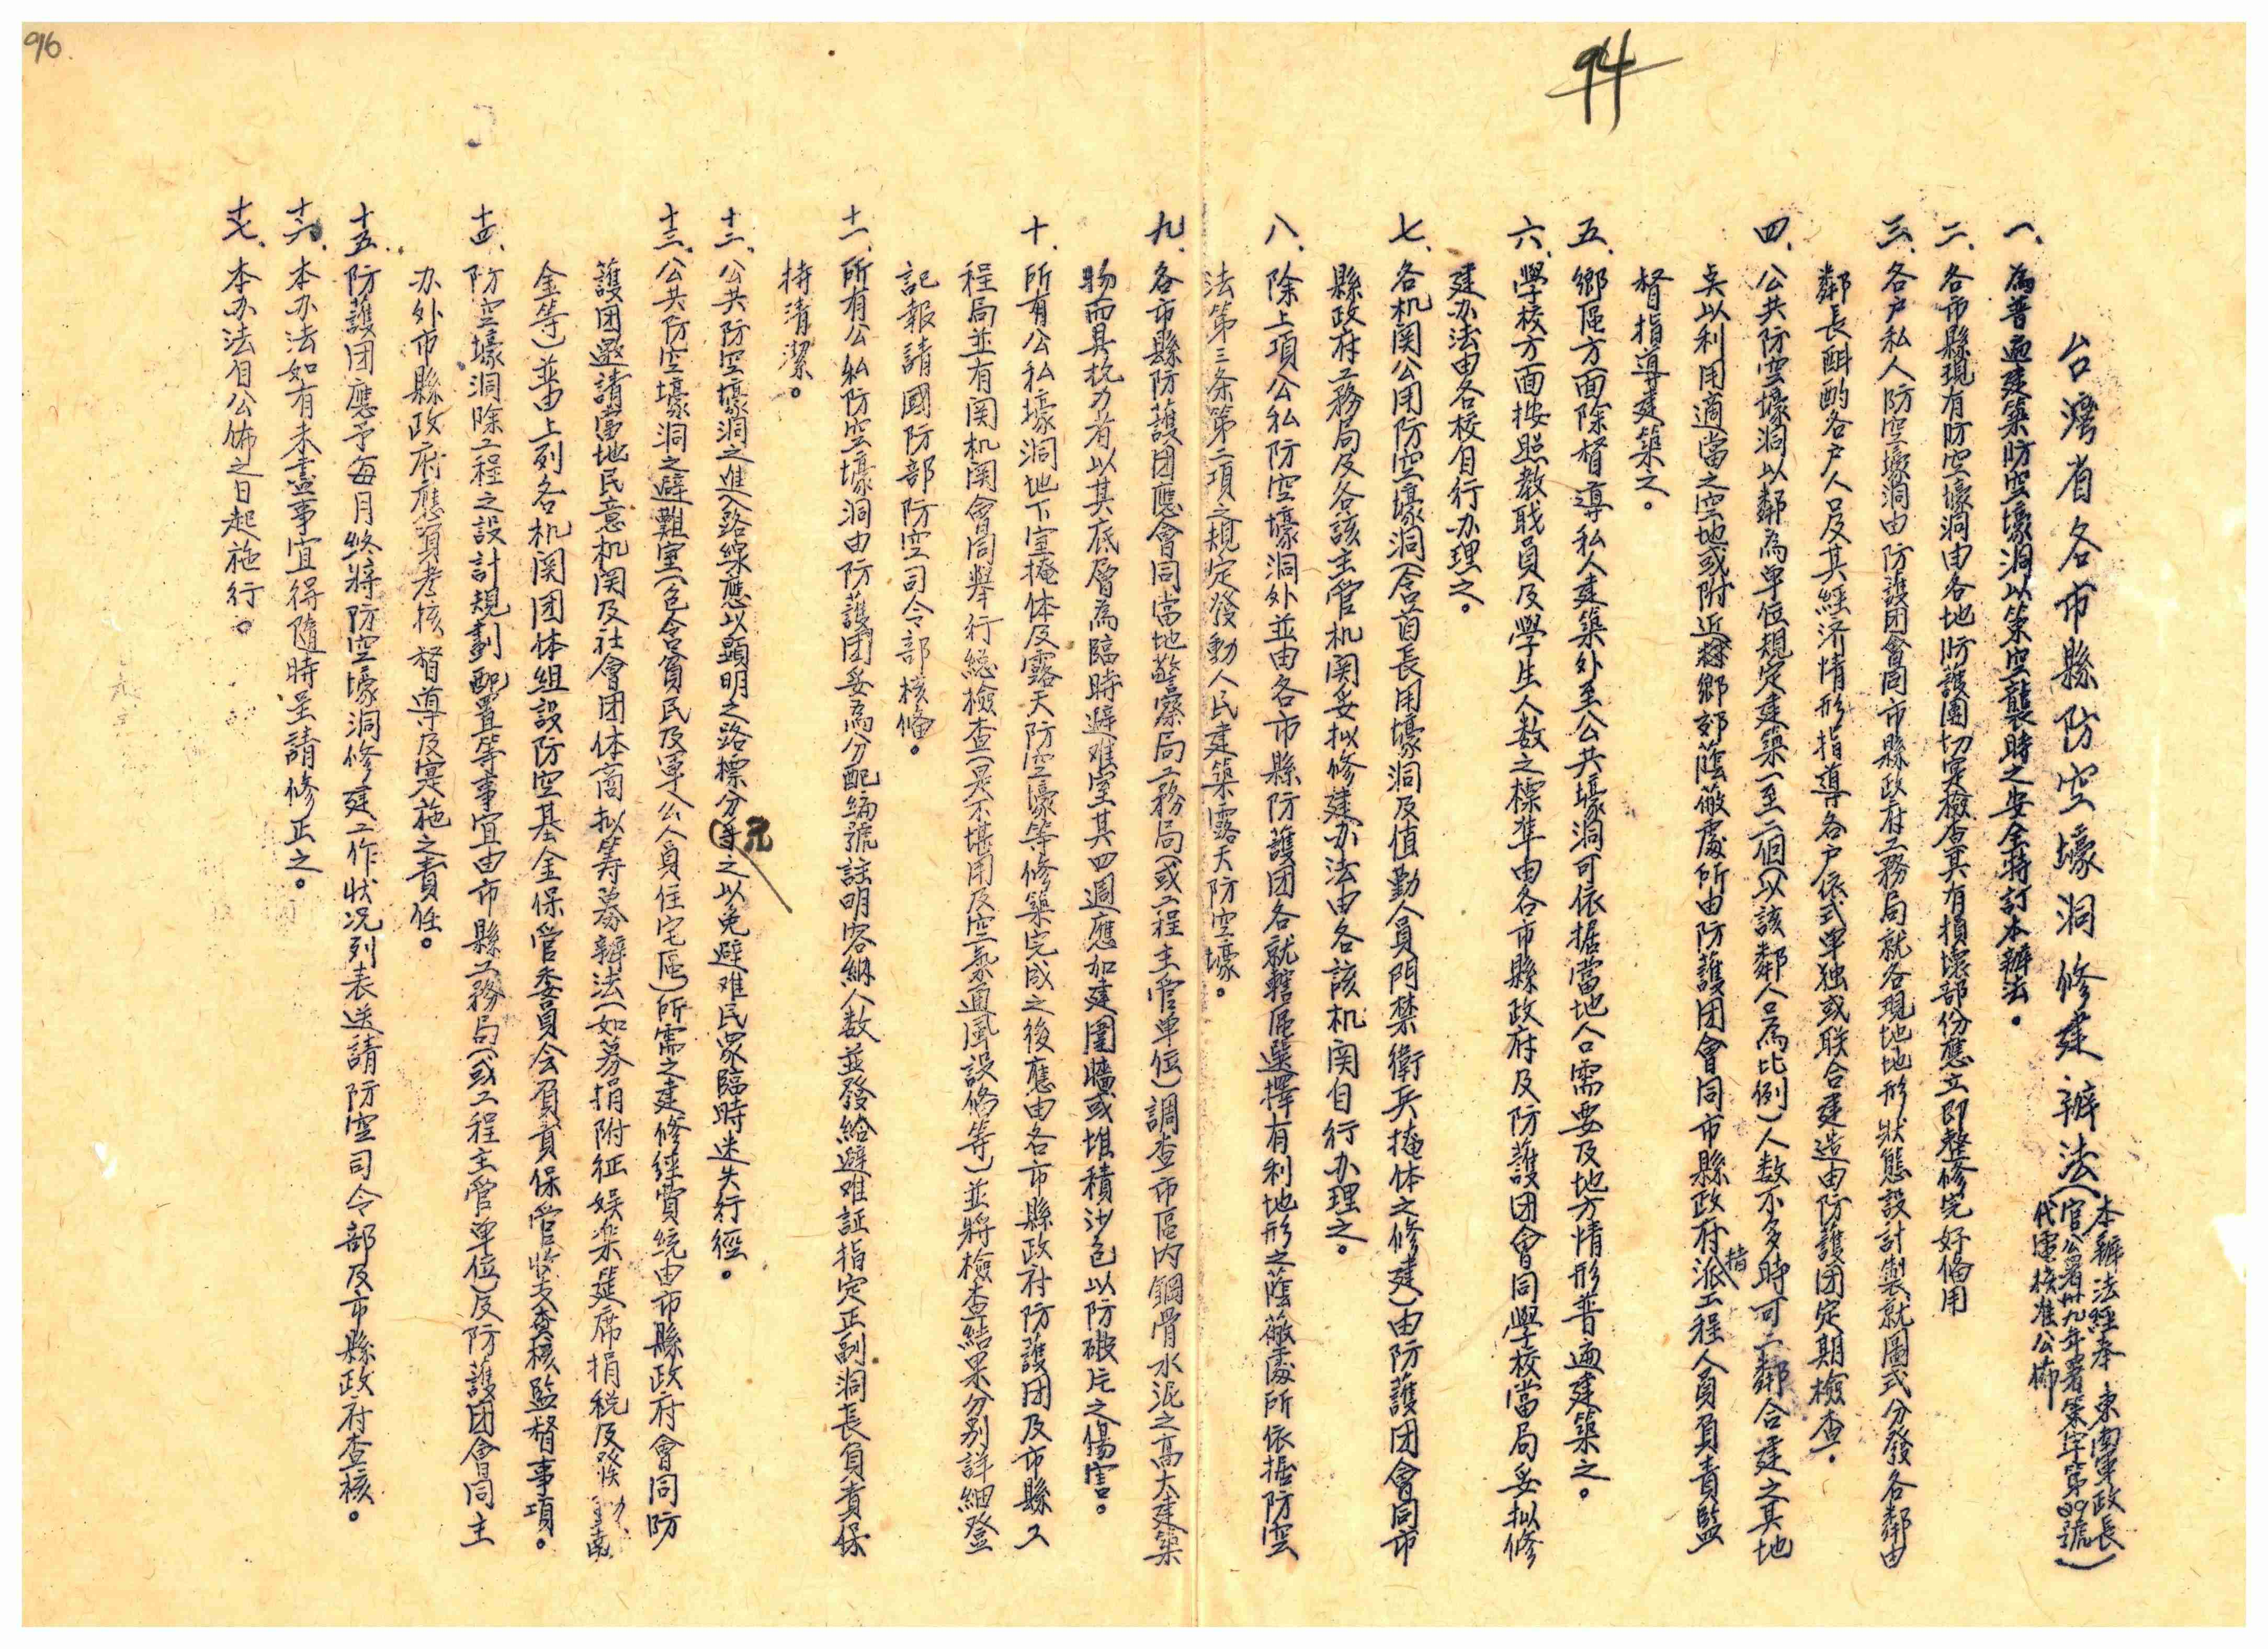 96.
94
台灣省各市縣防空壕洞修建辦法(本辦法經奉 東南軍政長
官公署卅九年署策字第89號
代電核准公佈)
一、為普遍建築防空壕洞以策空襲時之安全特訂本辦法。
二、各市縣現有防空壕洞由各地防護團切实檢查其有損壞部份應立即整修完好俻用
三、各户私人防空壕洞由防護团會同市縣政府工務局就各現地地形狀態設計製就圖式分發各鄰由
鄰長酙酌各户人口及其經济情形指導各户依式单独或联合建造由防護团定期檢查。
四、公共防空壕洞以鄰為单位規定建築一至二個(以該鄰人口為比例)人数不多時可二鄰合建之其地
奌以利用適當之空地或附近鄉郊蔭蔽處所由防護团會同市縣政府指派工程人員負責監
督指導建築之。
五、鄉區方面除督導私人建築外至公共壕洞可依据當地人口需要及地方情形普遍建築之。
六、學校方面按照教職員及學生人数之標準由各市縣政府及防護团會同學校當局妥拟修
建办法由各校自行办理之。
七、各机関公用防空壕洞(含首長用壕洞及值勤人員門禁衛兵掩体之修建)由防護团會同市
縣政府工務局及各該主管机関妥拟修建办法由各該机関自行办理之。
八、除上項公私防空壕洞外並由各市縣防護团各就轄區選擇有利地形之蔭蔽處所依据防空
法第三条第二項之規定發動人民建築露天防空壕。
九、各市縣防護团應會同當地警察局工務局(或工程主管单位)調查市區内鋼骨水泥之高大建築
物而具抗力者以其底層為臨時避难室其四週應加建圍牆或堆積沙包以防破片之傷害。
十、所有公私壕洞地下室掩体及露天防空壕等修築完成之後應由各市縣政府防護团及市縣工
程局並有関机関會同舉行總檢查(是不堪用及空氣通風設俻等)並將檢查結果分别詳細登
記報請國防部防空司令部核俻。
十一、所有公私防空壕洞由防護团妥為分配編號註明容納人数並發給避难証指定正副洞長負責保
持清潔。
十二、公共防空壕洞之進入路線應以顕明之路標分㝍之以免避难民眾臨時迷失行徑。
十三、公共防空壕洞之避難室(包含貧民及軍公人員住宅區)所需之建修經費統由市縣政府會同防
護团邀請當地民意机関及社會团体商拟筹募辦法(如募捐附征娱楽筵席捐税及發動
金等)並由上列各机関团体組設防空基金保管委員会負責保管收支查核監督事項。
十四、防空壕洞除工程之設計規劃配置等事宜由市縣工務局(或工程主管单位)及防護团會同主
办外市縣政府應負考核督導及实施之責任。
十五、防護团應予每月終將防空壕洞修建工作狀况列表送請防空司令部及市縣政府查核。
十六、本办法如有未盡事宜得隨時呈請修正之。
十七、本办法自公佈之日起施行。